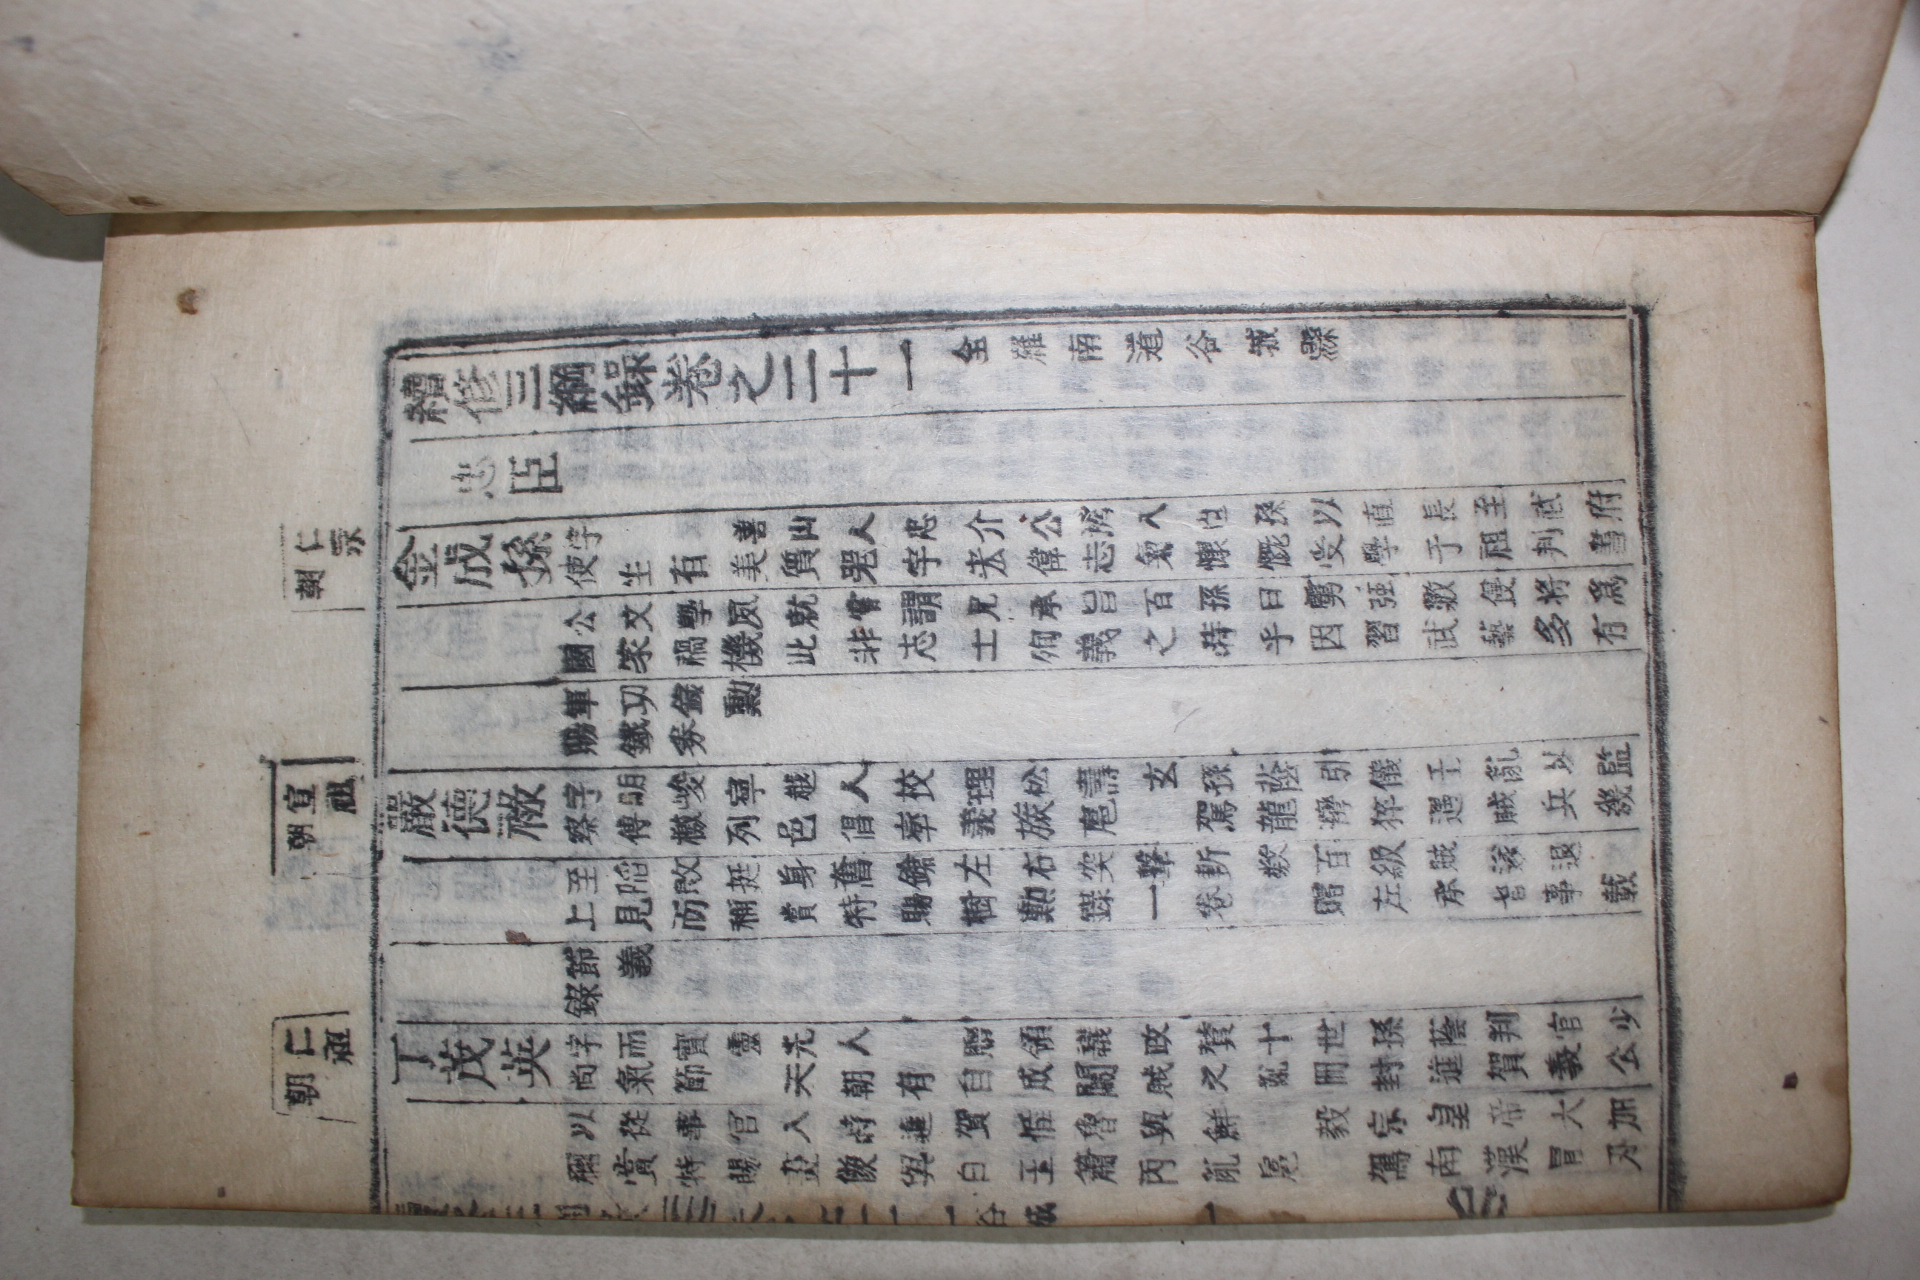 續修三綱錄卷之二十一 全羅南道谷城縣
忠臣
仁宗
朝
金成孫
字 善山人忠介公濟人曾孫以直長至武府
使生有美質器宇宏偉志氣慷慨受學于祖判書
公文學夙就嘗謂兄承旨百孫曰男強敵侵將爲
國家禍機此非志士殉義之時乎因習武藝多有
軍功錄勳
賜鐵券
宣祖
朝
嚴德祿
字明峻寧越人校理松壽玄孫蔭引儀壬亂以監
察傳檄列邑倡率義旅扈 駕龍灣猝遇賊兵幾
至陷敗挺身奮鎗左右突擊斬數百級賊遂退
上見而稱賞特賜樹勳錄一卷 贈左承旨事載
節義
錄
仁祖
朝
丁茂英
字而實靈光人 贈領議政贊十世孫蔭判官少
尚氣節 天朝有自成闖賊之亂冊封進賀義公
以從事官入時進賀 魯與鮮 毅宗皇帝大加
稱賞特賜畫 與白玉簫丙亂扈 駕南漢冒刃